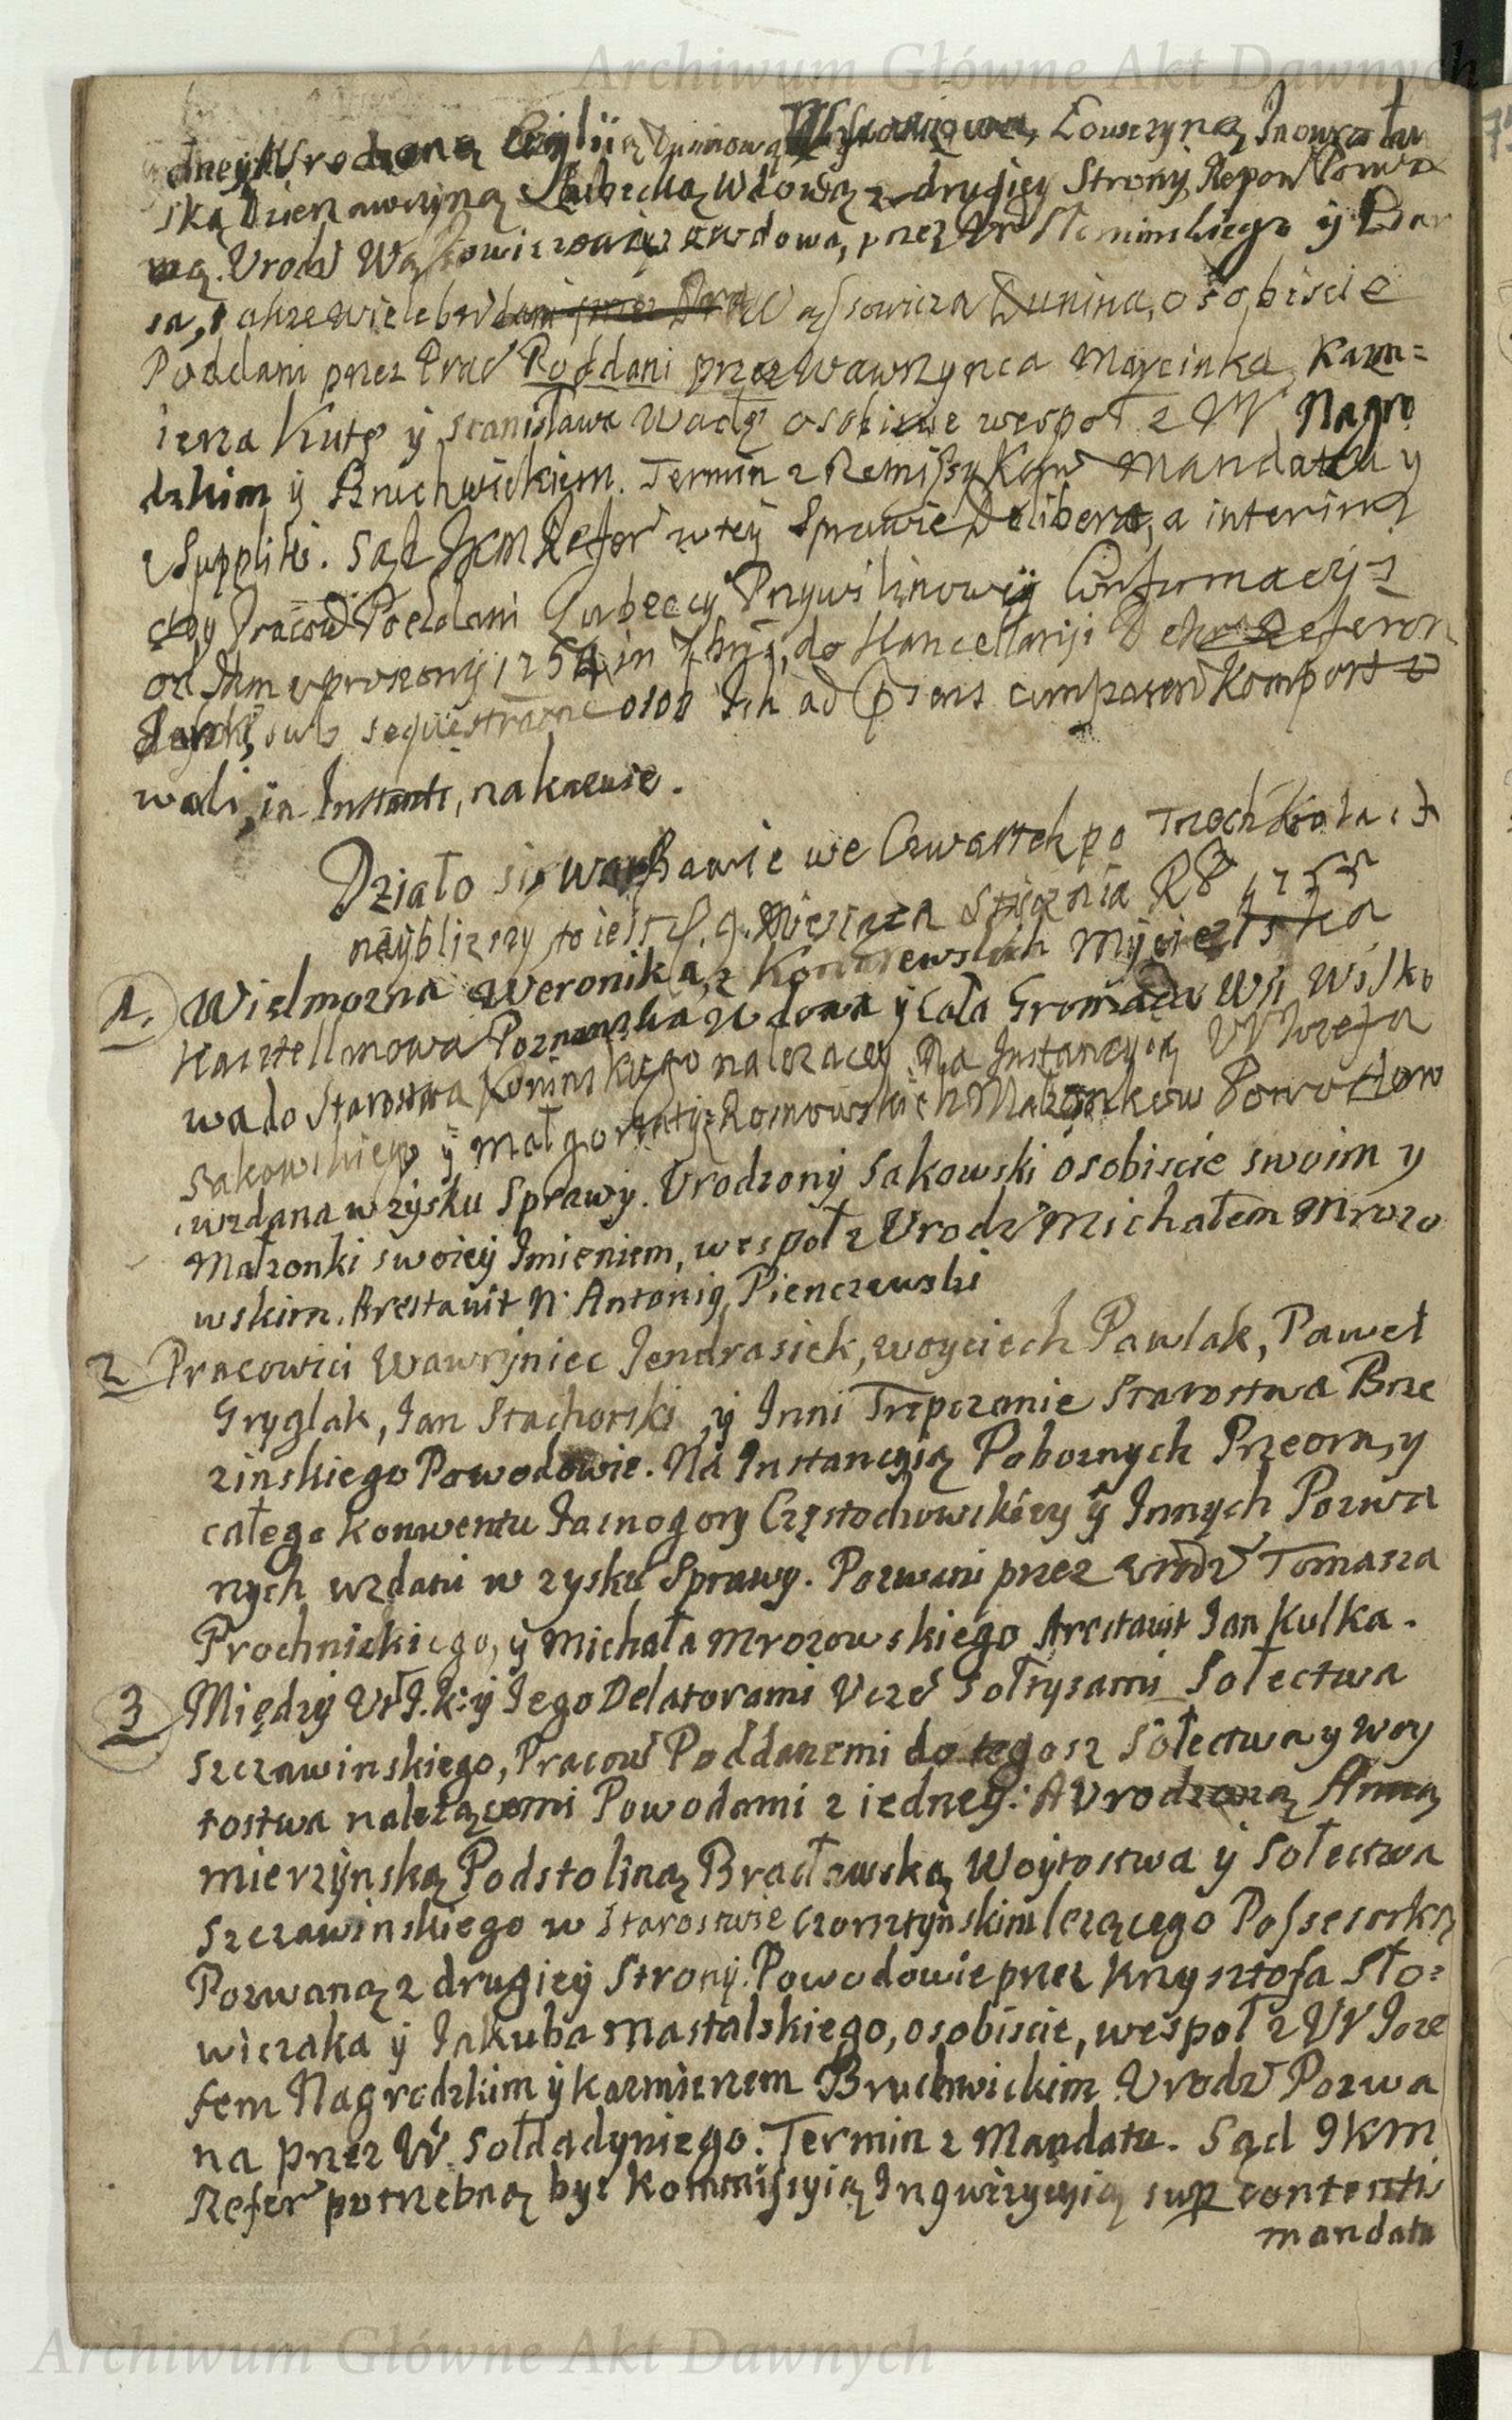 Archiwum Główne Akt Dawnych
dney Urodzoną Duninową Łowczyną Inowrocła
ską Dzierzawczyną Wdową z drugiey Strony, Repon
przez Ur Słonimskiego y
Dunina, osobiscie
Poddani przez Prac Poddani przez Wawrzynca Marcinka, Kazm=
ierza Kutę y Stanisława osobiscie wespoł z W Nagro
dzkim y Bruchwickiem. Termin z Remissy Mandatu y
z Suppliki. Sąd JKM Refer w tey Sprawie Delibera, a interim
Pracow Poddani Przywi Confirmacyi
od uproszony 1754 in do Kancellaryi Referen
sub sequestratione osob Ich ad comparen komporto
wali, in Instanti, nakazuie.
Działo się w Warszawie we Czwartek po Trzech Krolach
nayblizszy to iest d. 9. Miesiąca Stycznia RP 1755
1. Wielmozna Weronika z Konarzewskich Mycielska
Kasztellanowa Poznanska Wdowa y Cała Gromada Wsi Wilko
wa do Starostwa Koninskiego nalezacey Na Instancyią W Jozefa
Sakowskiego y Małgorzaty z Romowskich Małzonkow Powodow
wzdana w zysku Sprawy. Urodzony Sakowski osobiscie swoim y
Małzonki swoiey Imieniem, wespoł z Urodz Michałem Mrozo
wskim. Arestavit N. Antonig Pienczewski
2 Pracowici Wawrzyniec Jendrasiek, Woyciech Pawlak, Paweł
Gryglak, Jan Stachorski, y Inni Trepczanie Starostwa Brze
zinskiego Powodowie. Na Instancyią Poboznych Przeora, y
całego konwentu Jasnogory Częstochowskiey y Innych Pozwa
nych wzdani w zysku Sprawy. Pozwani przez Urodz Tomasza
Prochnickiego, y Michała Mrozowskiego Arestavit Jan Kulka.
3 Między Ur I. K: y Jego Delatorami Ucz Sołtysami Sołectwa
Szczawinskiego, Pracow Poddanemi do tegosz Sołectwa y Woy
tostwa nalezącemi Powodami z iedney: A Urodzoną Anną
Mierzynską Podstoliną Bracławską Woytostwa y Sołectwa
Szczawinskiego w Starostwie Czorsztynskim lezącego Possesorką
Pozwaną z drugiey Strony. Powodowie przez Krzysztofa Sło=
wiczaka y Jakuba Mastalskiego, osobiscie, wespoł z W Joze
fem Nagrodzkim y Kazmierzem Bruchwickim Urodz Pozwa
na przez W. Sołdadyniego. Termin z Mandatu. Sąd JKM
Refer potrzebną byc Kommissyią Inqwizycyią sup contentis
mandatu
Archiwum Główne Akt Dawnych